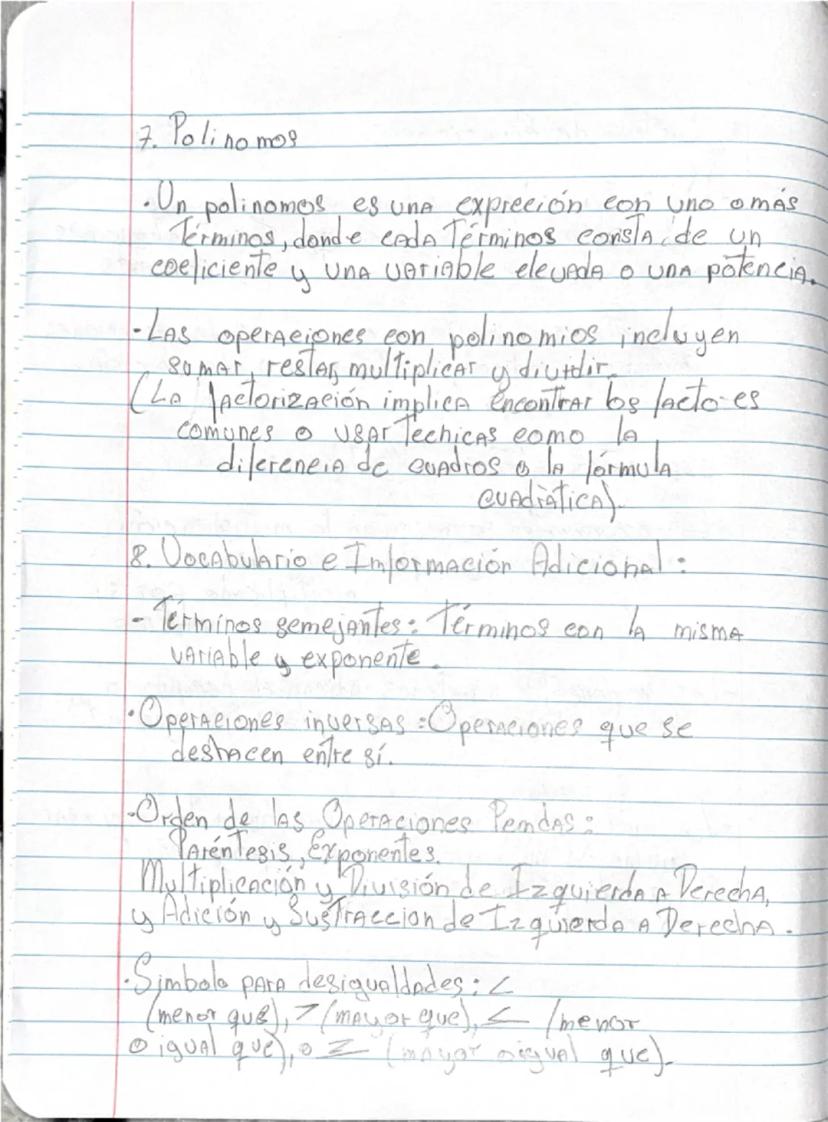 7. Polinomos
· Un polinomos es una expreción con uno o más
Términos, donde cada Términos consta de un
coeficiente y una variable elevada o una potencia.
- Las operaciones con polinomios incluyen
sumar, restar, multiplicar y dividir.
(La factorización implica encontrar los factores
comunes o usar Techicas como la
diferencia de cuadros o la fórmula
cuadrática).
8. Vocabulario e Información Adicional:
- Términos semejantes: Términos con la misma
variable y exponente.
· Operaciones inversas: Operaciones que se
deshacen entre sí.
- Orden de las Operaciones Pemdas:
Paréntesis, Exponentes.
Multiplicación y División de Izquierda a Derecha,
y Adición y Sustraccion de Izquierda a Derecha.
· Simbolo para desigualdades: <
(menor que), > (mayor que), ≤ (menor
o igual que), o ≥ (mayor o igual que).